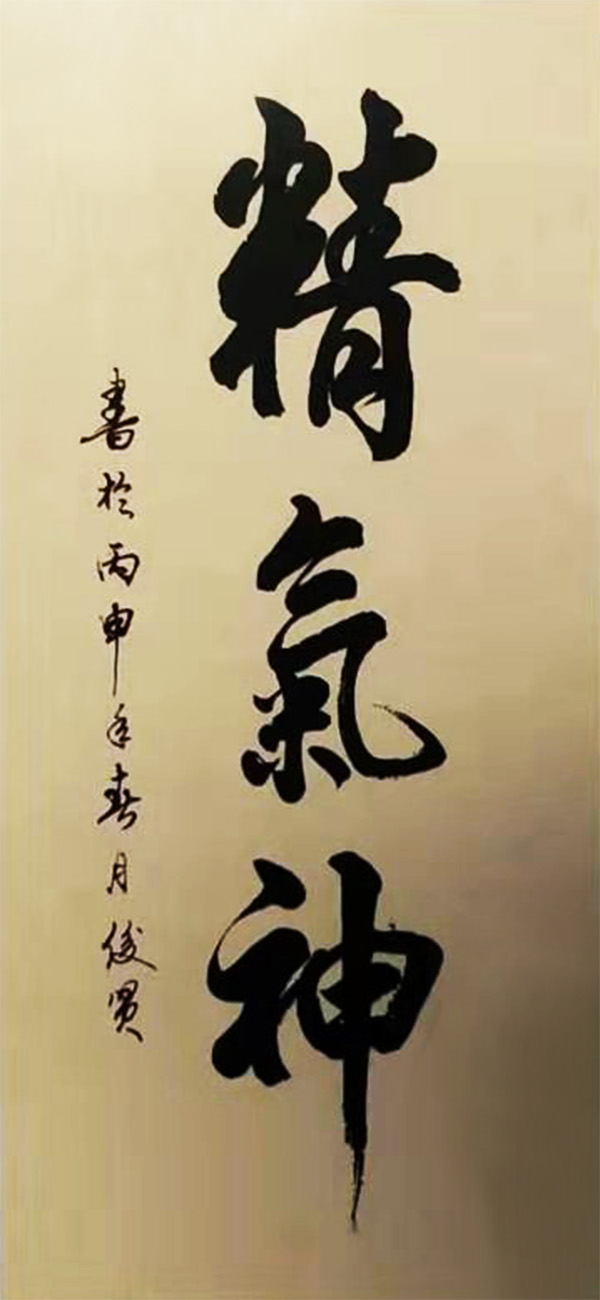 精氣神
書於丙申年春月俊贤